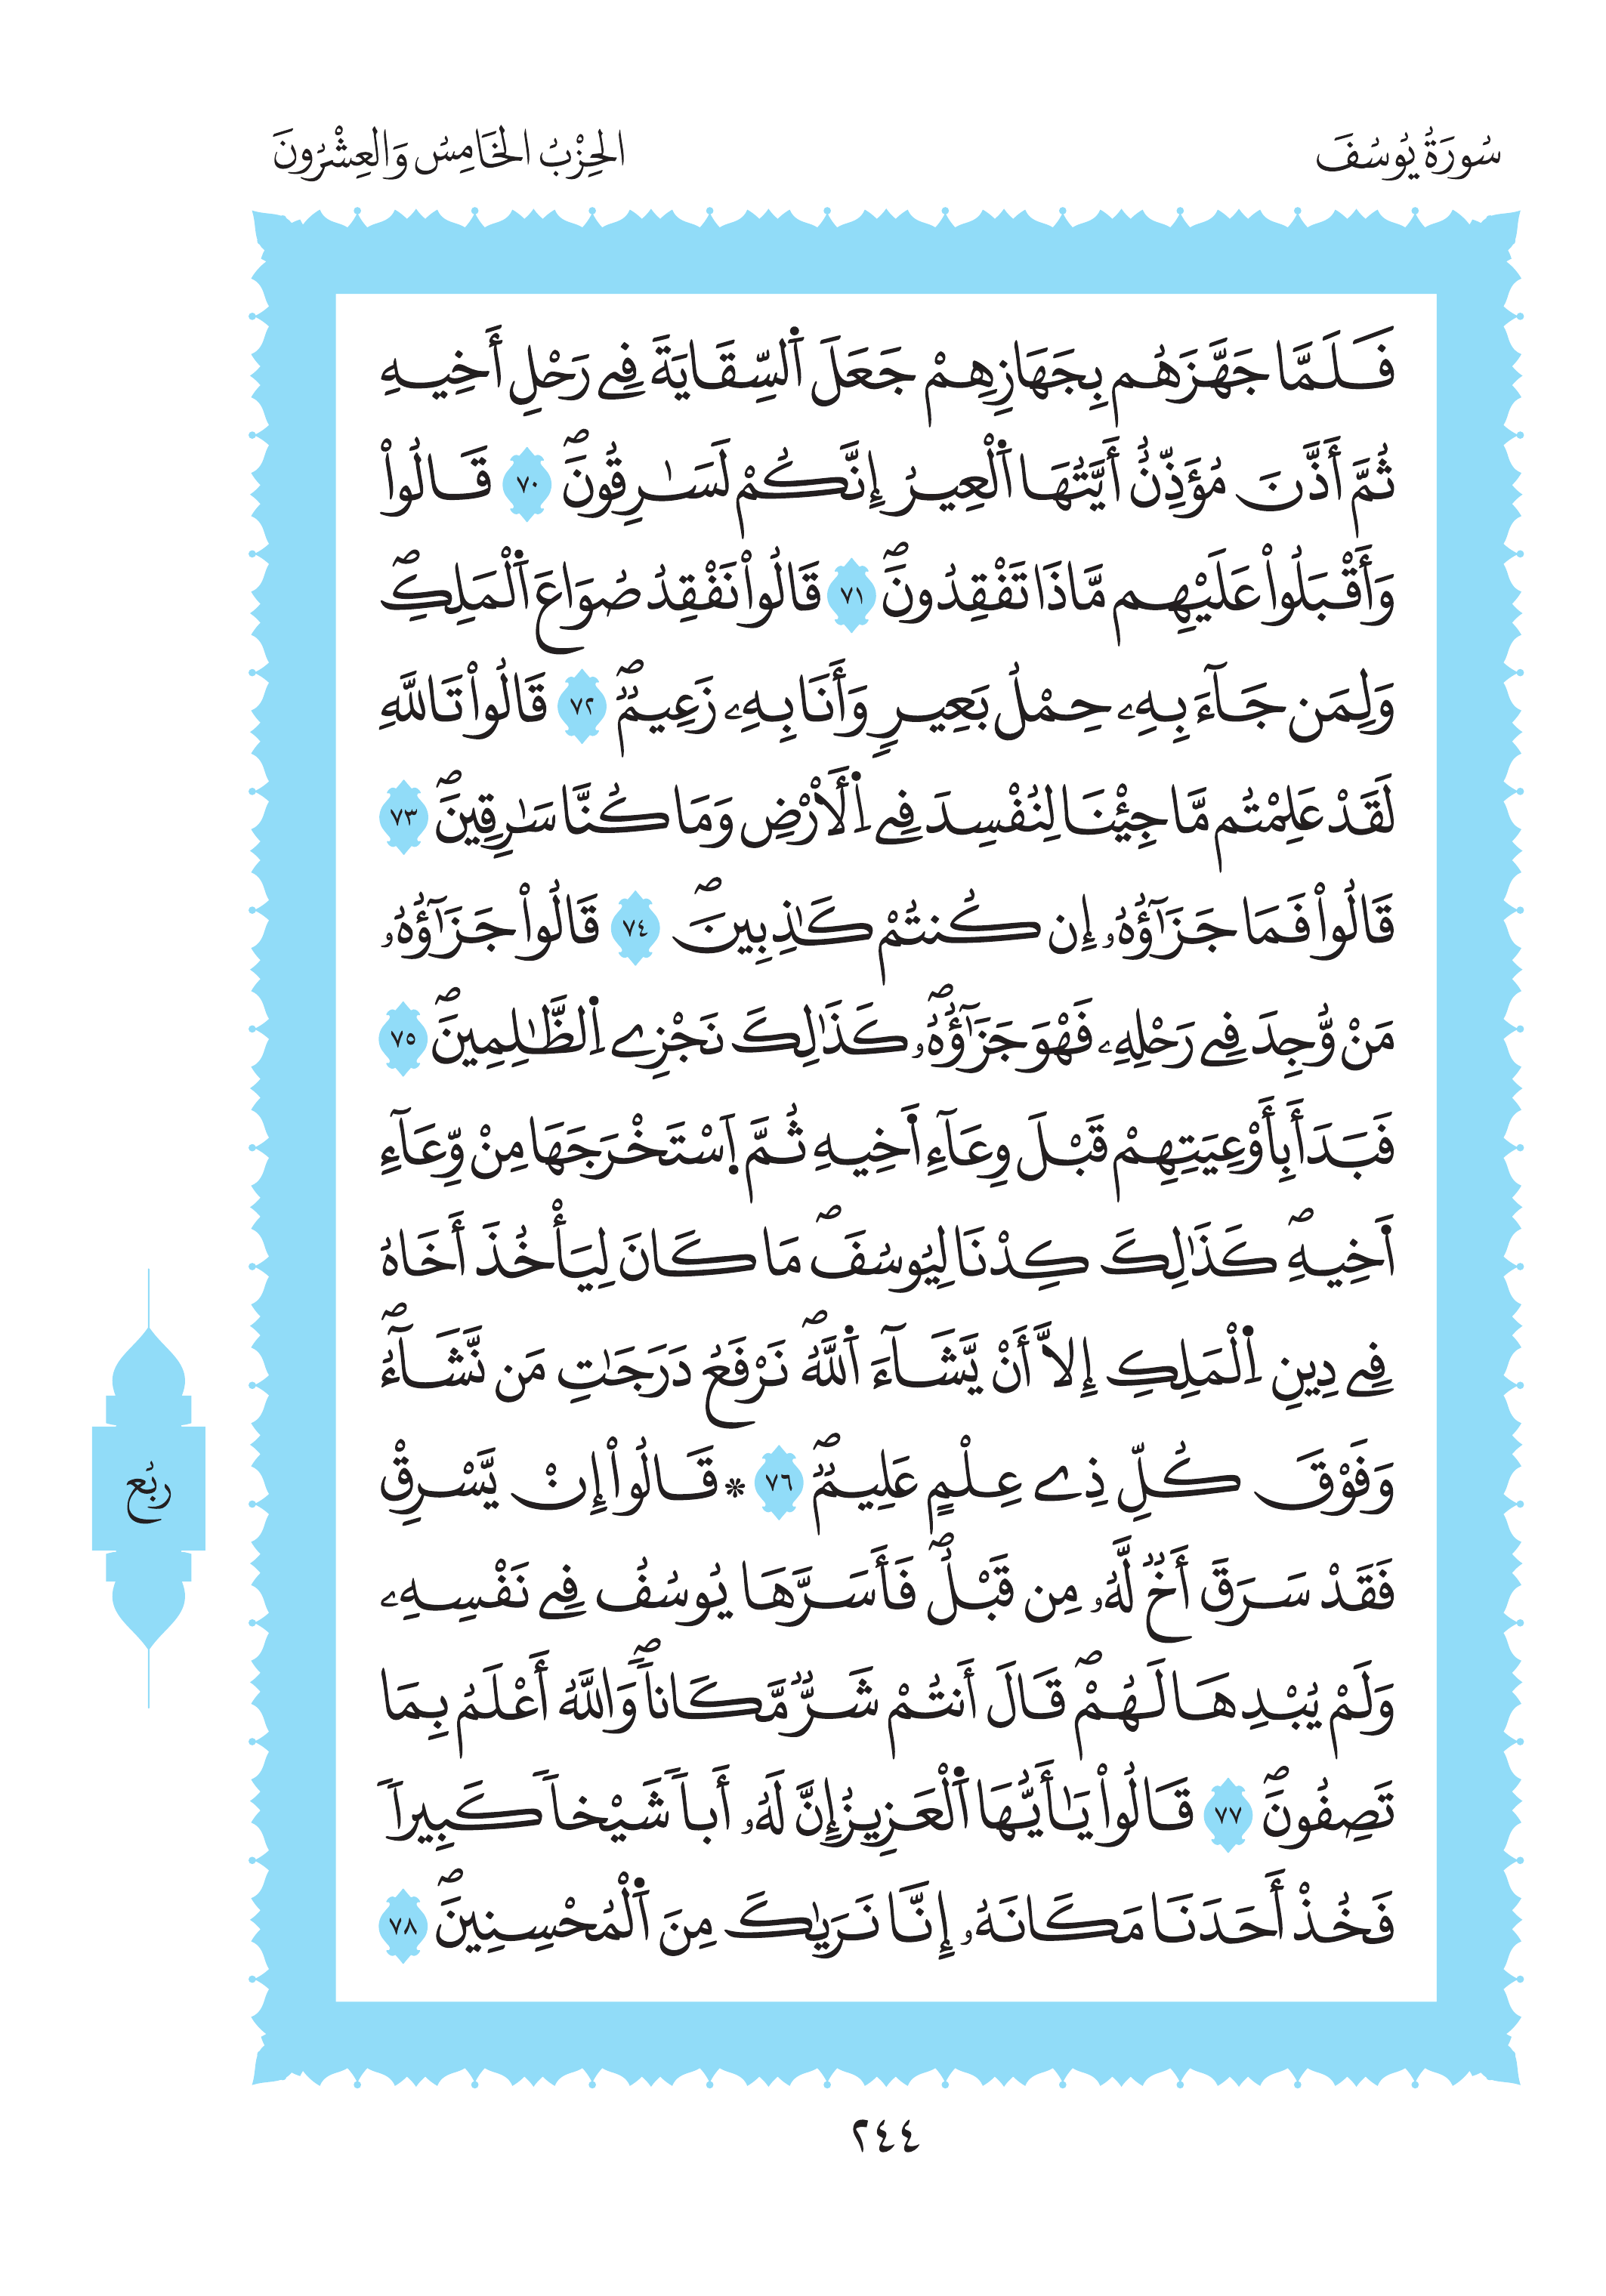 سُورَةُ يُوسُفَ
الحِزْبُ الخَامِسُ وَالعِشْرُونَ
فَلَمَّا جَهَّزَهُم بِجَهَازِهِمْ جَعَلَ اَ۬لسِّقَايَةَ فِے رَحْلِ أَخِيهِ
ثُمَّ أَذَّنَ مُؤَذِّنٌ أَيَّتُهَا اَ۬لْعِيرُ إِنَّكُمْ لَسَٰرِقُونَۖ ٧٠ قَالُواْ
وَأَقْبَلُواْ عَلَيْهِم مَّاذَا تَفْقِدُونَۖ ٧١ قَالُواْ نَفْقِدُ صُوَاعَ اَ۬لْمَلِكِۖ
وَلِمَن جَآءَ بِهِۦ حِمْلُ بَعِيرٖ وَأَنَا بِهِۦ زَعِيمٞۖ ٧٢ قَالُواْ تَاللَّهِ
لَقَدْ عَلِمْتُم مَّا جِئْنَا لِنُفْسِدَ فِے اِ۬لَارْضِ وَمَا كُنَّا سَٰرِقِينَۖ ٧٣
قَالُواْ فَمَا جَزَٰٓؤُهُۥ إِن كُنتُمْ كَٰذِبِينَۖ ٧٤ قَالُواْ جَزَٰٓؤُهُۥ
مَنْ وُّجِدَ فِے رَحْلِهِۦ فَهْوَ جَزَٰٓؤُهُۥۖ كَذَٰلِكَ نَجْزِے اِ۬لظَّٰلِمِينَۖ ٧٥
فَبَدَأَ بِأَوْعِيَتِهِمْ قَبْلَ وِعَآءِ اَ۬خِيهِ ثُمَّ اَ۪سْتَخْرَجَهَا مِنْ وِّعَآءِ
اَ۬خِيهِۖ كَذَٰلِكَ كِدْنَا لِيُوسُفَۖ مَا كَانَ لِيَأْخُذَ أَخَاهُ
فِے دِينِ اِ۬لْمَلِكِ إِلَّا أَنْ يَّشَآءَ اَ۬للَّهُۖ نَرْفَعُ دَرَجَٰتِ مَن نَّشَآءُۖ
وَفَوْقَ كُلِّ ذِے عِلْمٍ عَلِيمٞۖ ٧٦ * قَالُواْ إِنْ يَّسْرِقْ
فَقَدْ سَرَقَ أَخٞ لَّهُۥ مِن قَبْلُۖ فَأَسَرَّهَا يُوسُفُ فِے نَفْسِهِۦ
وَلَمْ يُبْدِهَا لَهُمْۖ قَالَ أَنتُمْ شَرّٞ مَّكَاناٗۖ وَاللَّهُ أَعْلَمُ بِمَا
تَصِفُونَۖ ٧٧ قَالُواْ يَٰأَيُّهَا اَ۬لْعَزِيزُ إِنَّ لَهُۥ أَباٗ شَيْخاٗ كَبِيراٗ
فَخُذْ أَحَدَنَا مَكَانَهُۥ إِنَّا نَرَيٰكَ مِنَ اَ۬لْمُحْسِنِينَۖ ٧٨
ربُع
٢٤٤